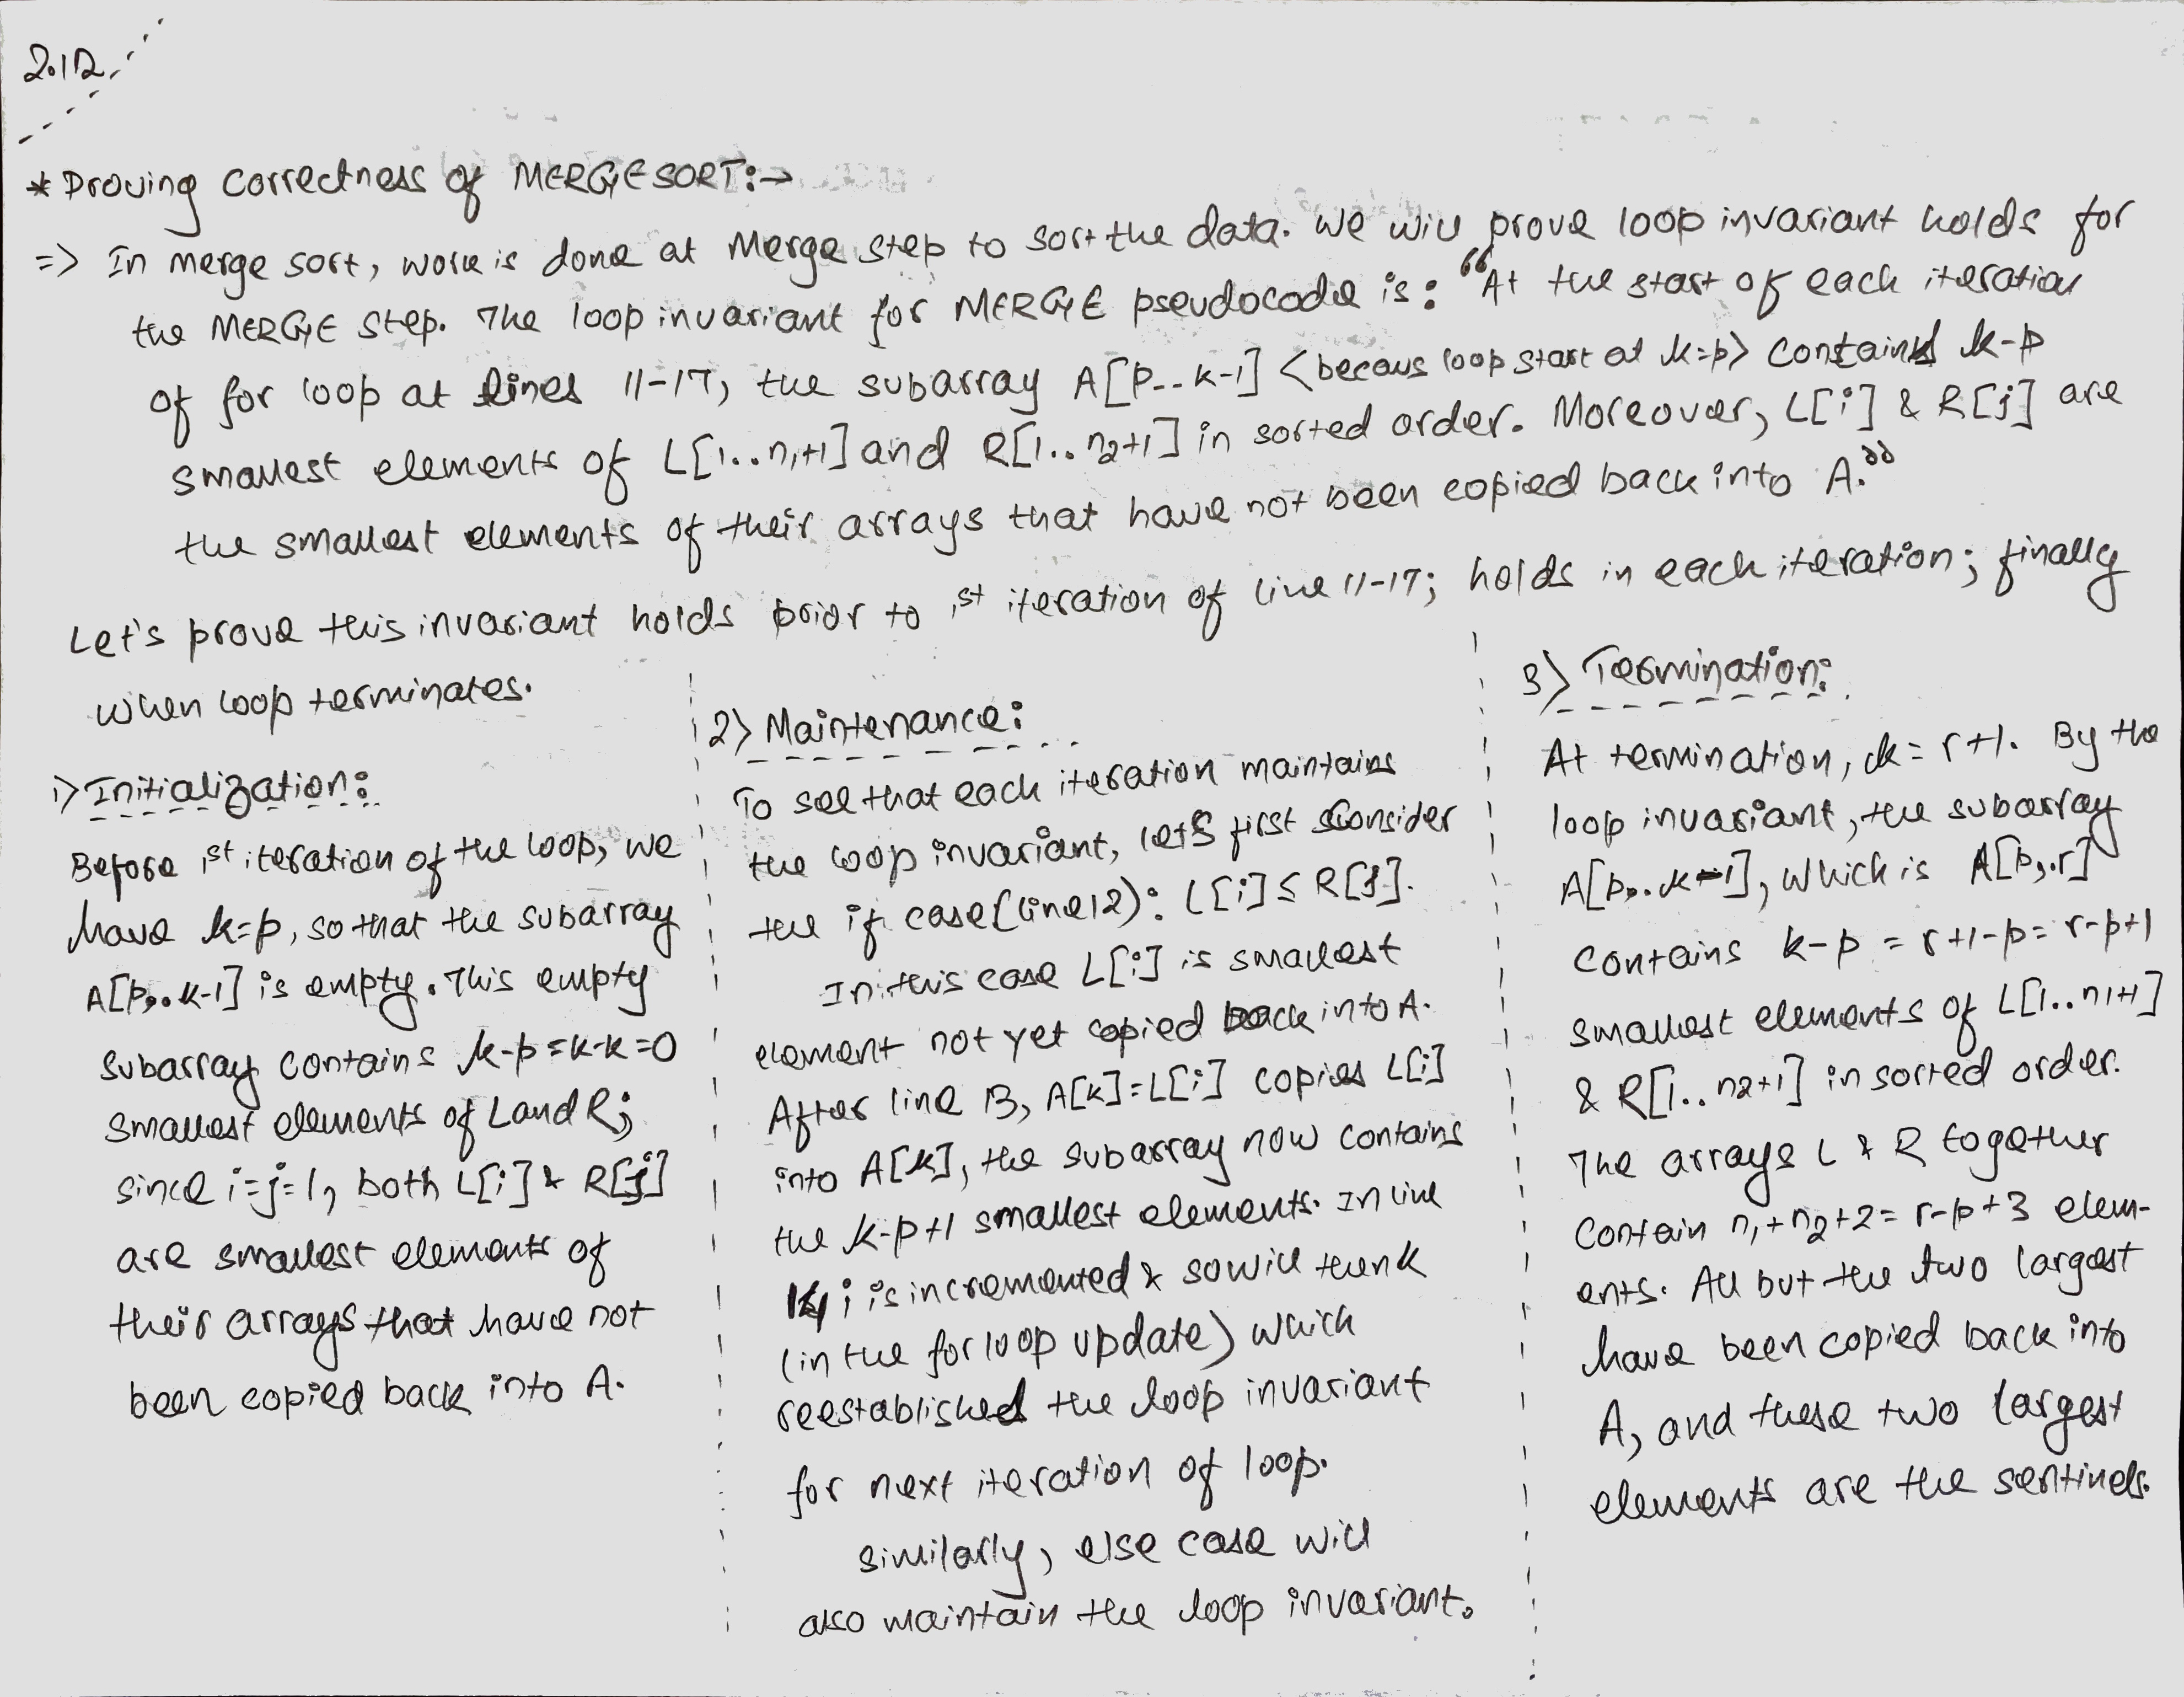 2.12
* Proving correctness of MERGESORT:→
=> In merge sort, work is done at Merge step to sort the data. We will prove loop invariant holds for
the MERGE step. The loop invariant for MERGE pseudocode is: “At the start of each iteration
of for loop at lines 11-17, the subarray A[p--k-1] <becaus loop start at k=p> contains k-p
smallest elements of L[1..n1+1] and R[1..n2+1] in sorted order. Moreover, L[i] & R[j] are
the smallest elements of their arrays that have not been copied back into A.”
Let's prove this invariant holds prior to 1st iteration of line 11-17; holds in each iteration; finally
when loop terminates.
1) Initialization:
Before 1st iteration of the loop, we
have k=p, so that the subarray
A[p..k-1] is empty. This empty
subarray contains k-p=k-k=0
smallest elements of L and R;
since i=j=1, both L[i] & R[j]
are smallest elements of
their arrays that have not
been copied back into A.
2) Maintenance:
To see that each iteration maintains
the loop invariant, let's first consider
the if case (line 12): L[i] ≤ R[j].
In this case L[i] is smallest
element not yet copied back into A.
After line 13, A[k]=L[i] copies L[i]
into A[k], the subarray now contains
the k-p+1 smallest elements. In line
14 i is incremented & so will then k
(in the for loop update) which
reestablished the loop invariant
for next iteration of loop.
similarly, else case will
also maintain the loop invariant.
3) Termination:
At termination, k = r+1. By the
loop invariant, the subarray
A[p..k-1], which is A[p..r]
contains k-p = r+1-p = r-p+1
smallest elements of L[1..n1+1]
& R[1..n2+1] in sorted order.
The arrays L & R together
contain n1+n2+2 = r-p+3 elem-
ents. All but the two largest
have been copied back into
A, and these two largest
elements are the sentinels.